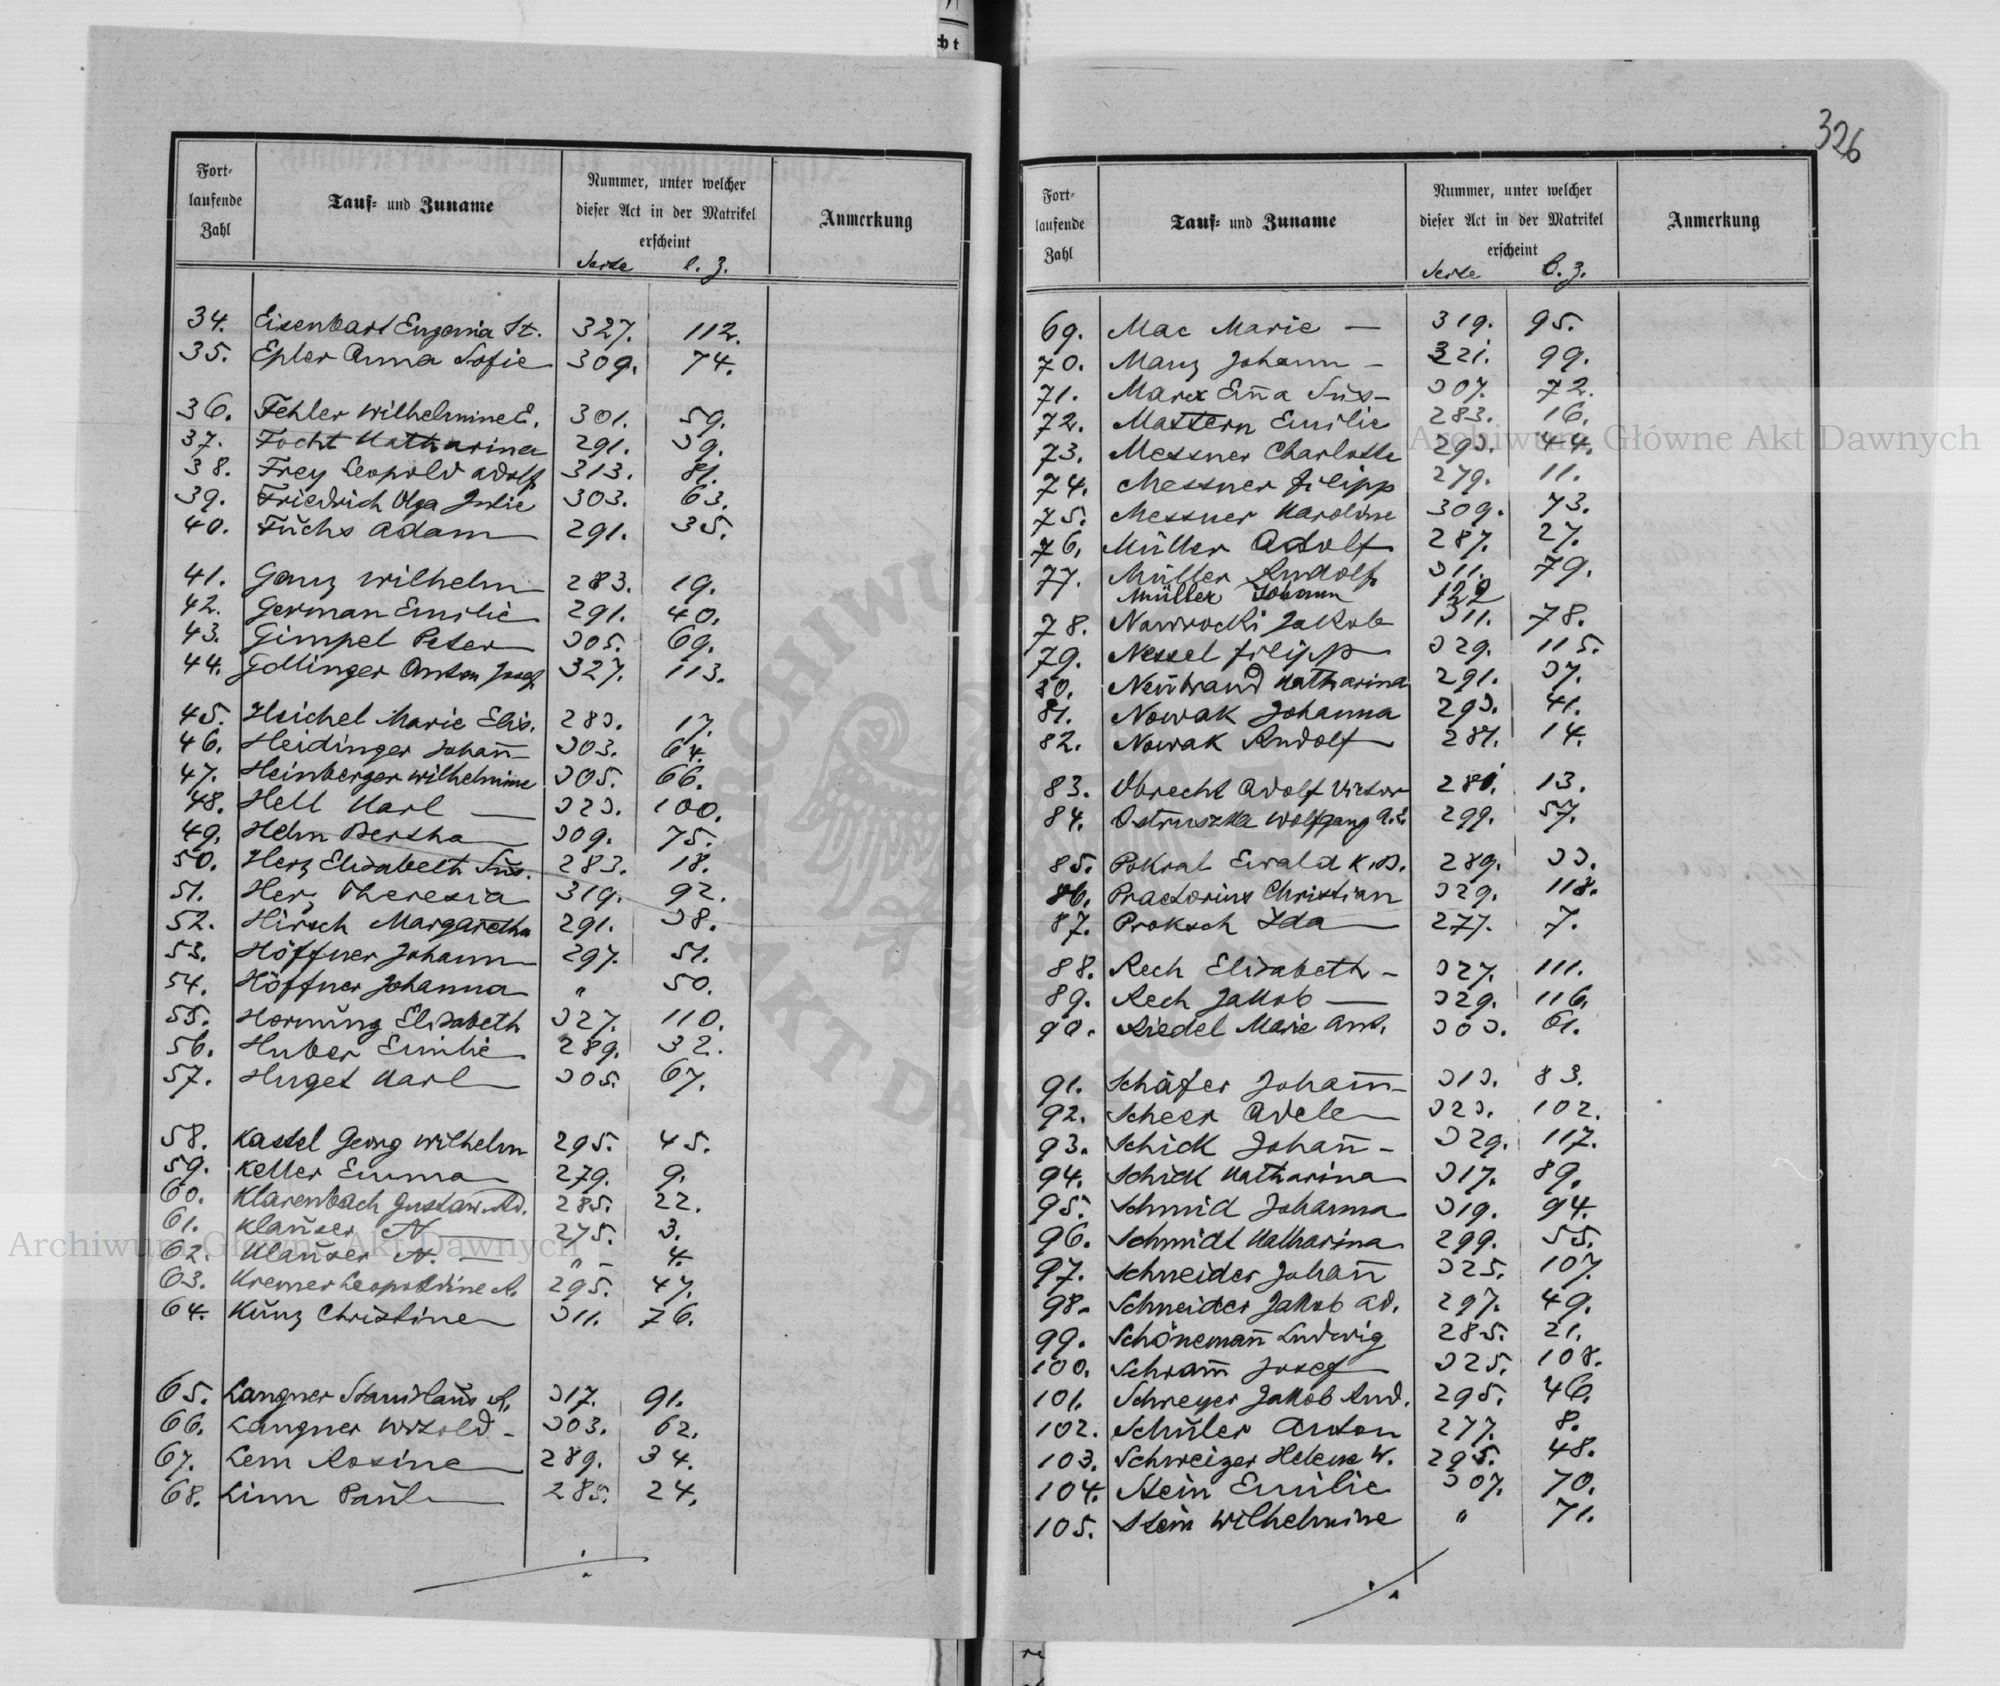 cht
326
Fort-
laufende
Zahl
Tauf- und Zuname
Nummer, unter welcher
dieser Act in der Matrikel
erscheint
Seite l. Z.
Anmerkung
34. Eisenbart Eugenia St. 327. 112.
35. Epler Anna Sofie 309. 74.
36. Fehler Wilhelmine E. 301. 59.
37. Focht Katharina 291. 39.
38. Frey Leopold Adolf 313. 81.
39. Friedrich Olga Julie 303. 63.
40. Fuchs Adam 291. 35.
41. Ganz Wilhelm 283. 19.
42. German Emilie 291. 40.
43. Gimpel Peter 305. 69.
44. Gollinger Anton Josef 327. 113.
45. Heichel Marie Elis. 283. 17.
46. Heidinger Johann 303. 64.
47. Heinberger Wilhelmine 305. 66.
48. Hell Karl — 323. 100.
49. Helm Bertha 309. 75.
50. Herz Elisabeth Sus. 283. 18.
51. Herz Theresia 319. 92.
52. Hirsch Margaretha 291. 38.
53. Höffner Johann 297. 51.
54. Höffner Johanna " 50.
55. Hornung Elisabeth 327. 110.
56. Huber Emilie 289. 32.
57. Huget Karl 305. 67.
58. Kastel Georg Wilhelm 295. 45.
59. Keller Emma 279. 9.
60. Klarenbach Gustaw Ad. 285. 22.
61. Klauser N — 275. 3.
62. Klauser N. — " — 4.
63. Kremer Leopoldine A. 295. 47.
64. Kunz Christine 311. 76.
65. Langner Stanislaus A. 317. 91.
66. Langner Witold - 303. 62.
67. Lem Rosine 289. 34.
68. Linn Paul 285. 24.
Fort-
laufende
Zahl
Tauf- und Zuname
Nummer, unter welcher
dieser Act in der Matrikel
erscheint
Seite l. Z.
Anmerkung
69. Mac Marie — 319. 95.
70. Manz Johann - 321. 99.
71. Marx Em̄a Sus- 307. 72.
72. Mattern Emilie 283. 16.
73. Messner Charlotte 293. 44.
74. Messner Filipp 279. 11.
75. Messner Karoline 309. 73.
76. Müller Adolf 287. 27.
77. Müller Rudolf 311. 79.
Müller Johann 122
78. Nawrocki Jakob 311. 78.
79. Nessel Filipp 329. 115.
80. Neubrand Katharina 291. 37.
81. Nowak Johanna 293. 41.
82. Nowak Rudolf 281. 14.
83. Obrecht Adolf Victor 281. 13.
84. Ostruszka Wolfgang A.E. 299. 57.
85. Pokral Ewald K.D. 289. 33.
86. Praetorius Christian 329. 118.
87. Proksch Ida 277. 7.
88. Rech Elisabeth - 327. 111.
89. Rech Jakob — 329. 116.
90. Riedel Marie Ant. 303. 61.
91. Schäfer Johan̄ - 313. 83.
92. Scheer Adele 323. 102.
93. Schick Johan̄ - 329. 117.
94. Schick Katharina 317. 89.
95. Schmid Johanna 319. 94.
96. Schmidt Katharina 299. 55.
97. Schneider Johan̄ 325. 107.
98. Schneider Jakob Ad. 297. 49.
99. Schöneman̄ Ludwig 285. 21.
100. Schram̄ Josef 325. 108.
101. Schreyer Jakob Rud. 295. 46.
102. Schuler Anton 277. 8.
103. Schweizer Helene W. 295. 48.
104. Stein Emilie 307. 70.
105. Stein Wilhelmine " 71.
Archiwum Główne Akt Dawnych
Archiwum Główne Akt Dawnych